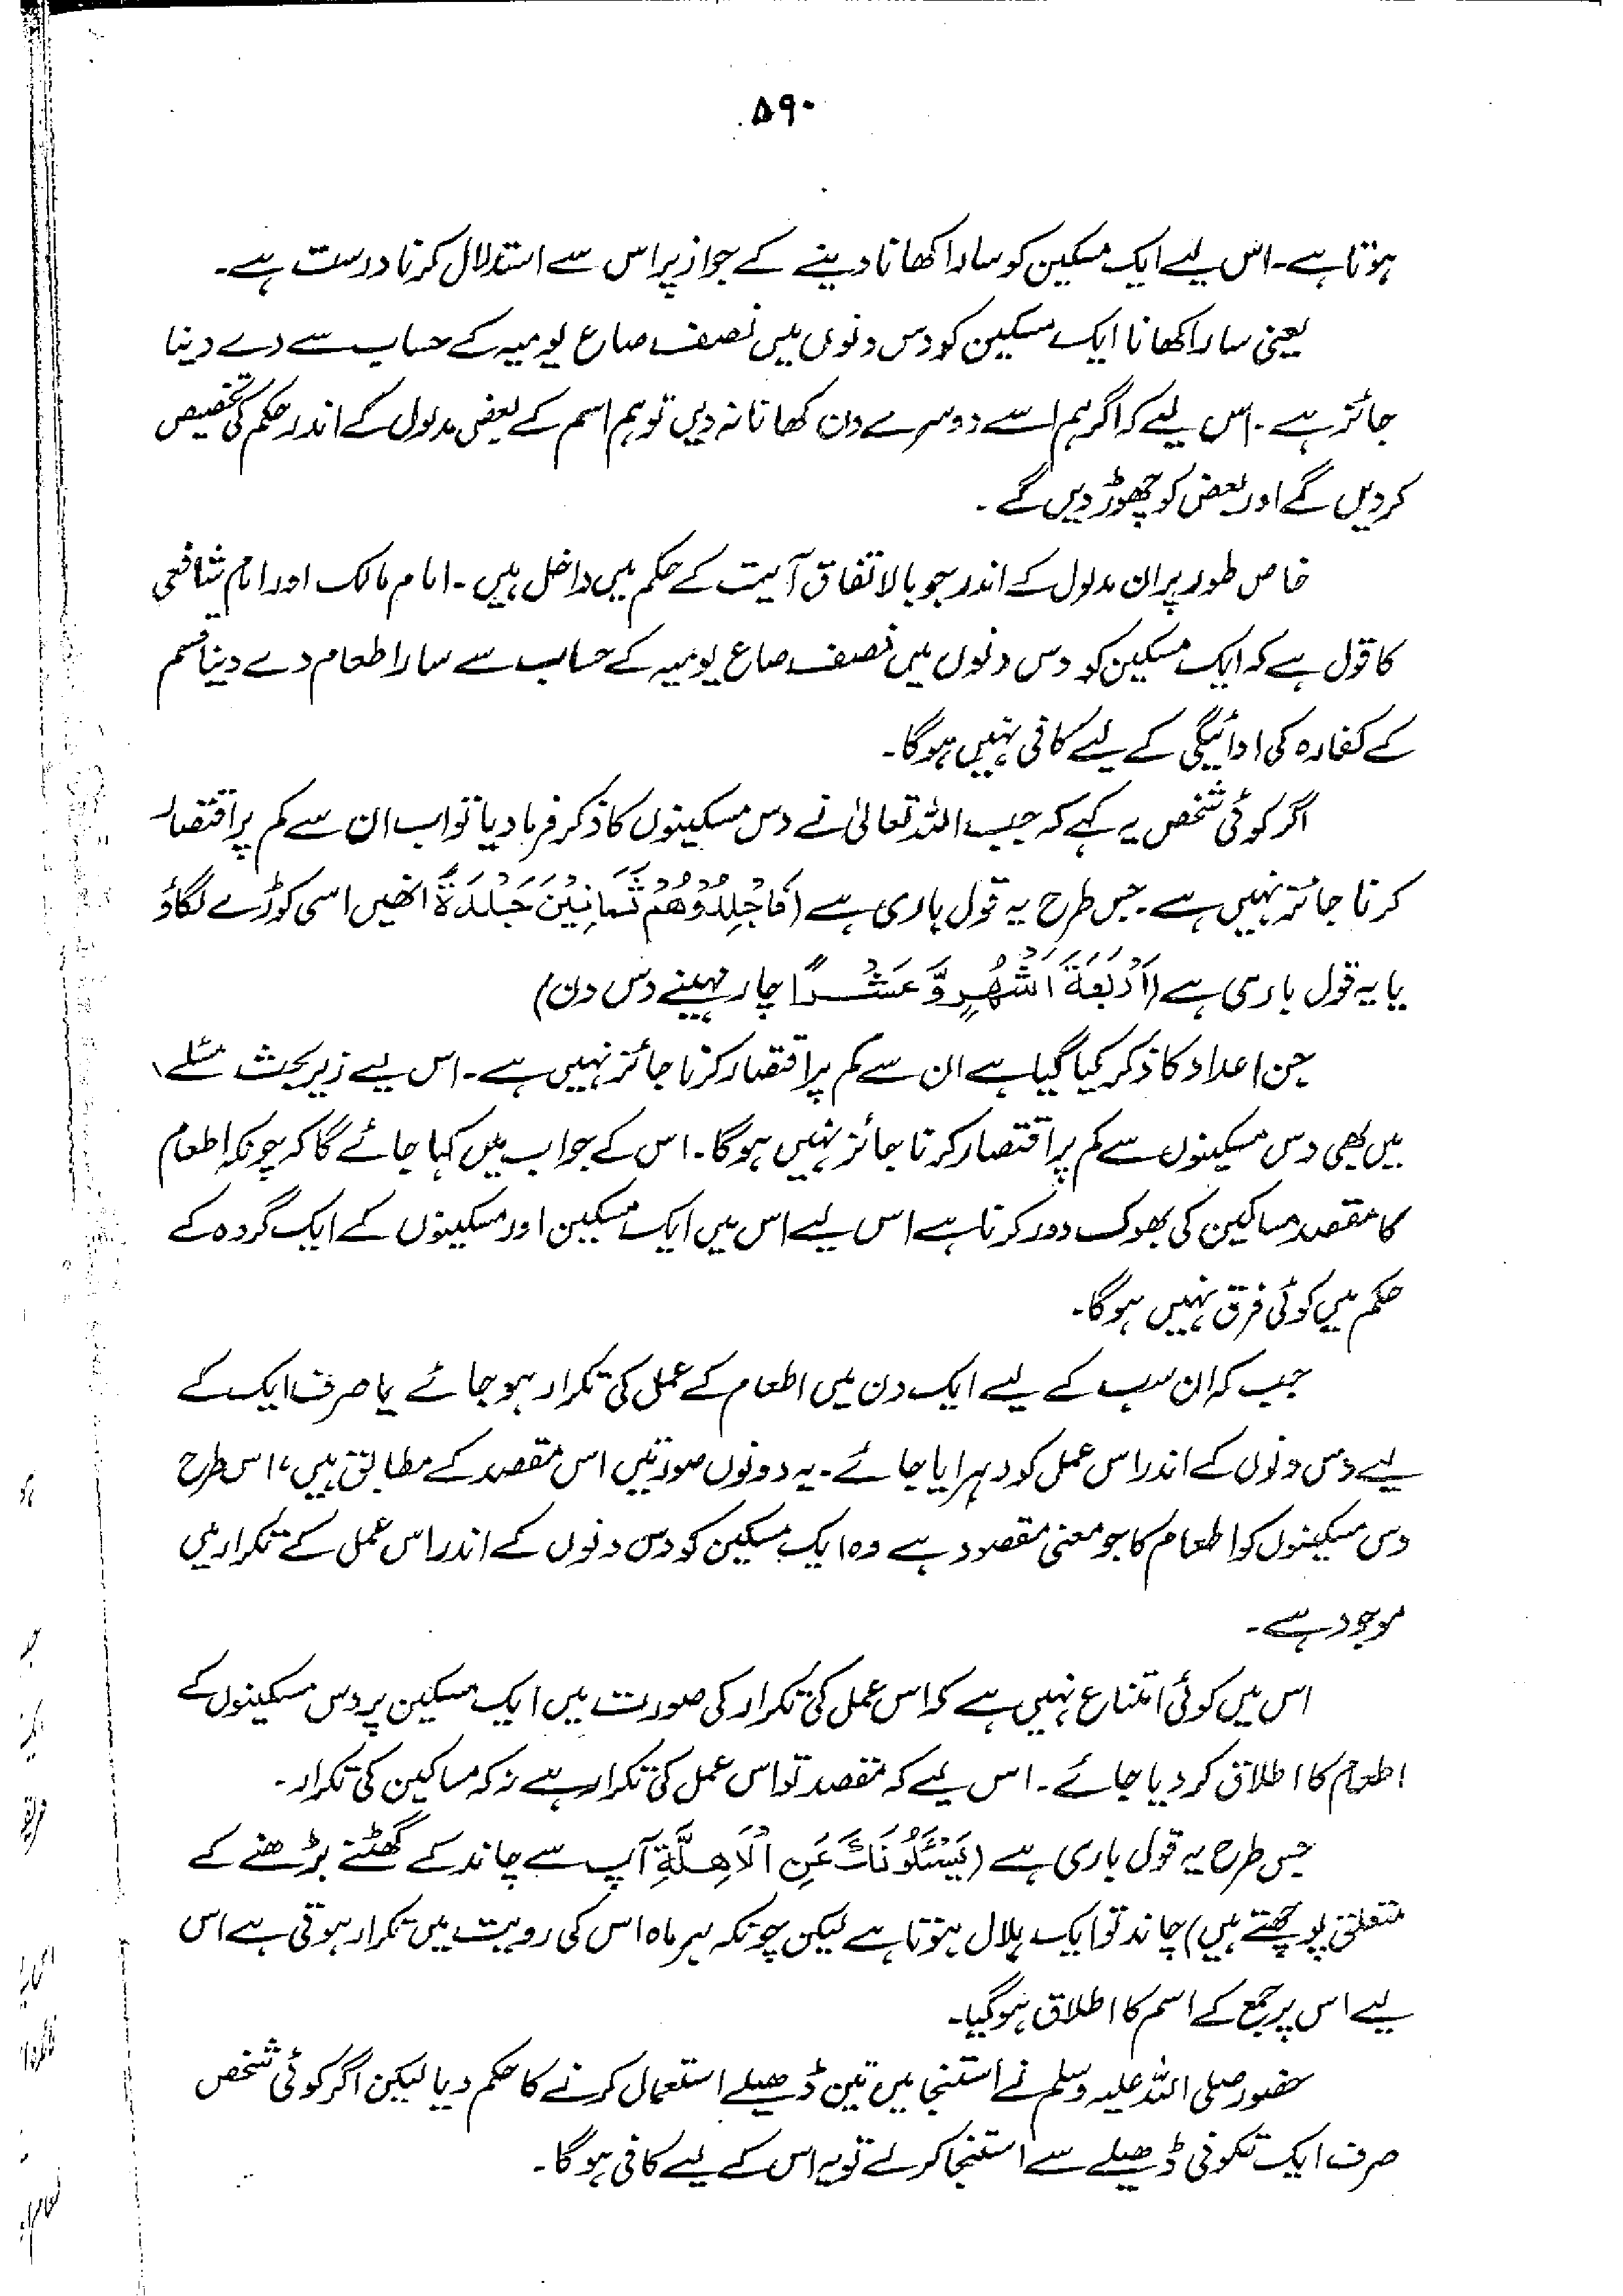 ۵۹۰
ہوتا ہے۔ اس لیے ایک مسکین کو سارا کھانا دینے کے جواز پر اس سے استدلال کرنا درست ہے۔
یعنی سارا کھانا ایک مسکین کو دس دنوں میں نصف صاع یومیہ کے حساب سے دے دینا
جائز ہے۔ اس لیے کہ اگر ہم اسے دوسرے دن کھانا نہ دیں تو ہم اسم کے بعض مدلول کے اندر حکم کی تخصیص
کر دیں گے اور بعض کو چھوڑ دیں گے۔
خاص طور پر ان مدلول کے اندر جو بالاتفاق آیت کے حکم میں داخل ہیں۔ امام مالک اور امام شافعی
کا قول ہے کہ ایک مسکین کو دس دنوں میں نصف صاع یومیہ کے حساب سے سارا طعام دے دینا قسم
کے کفارہ کی ادائیگی کے لیے کافی نہیں ہوگا۔
اگر کوئی شخص یہ کہے کہ جب اللہ تعالیٰ نے دس مسکینوں کا ذکر فرما دیا تو اب ان سے کم پر اقتصار
کرنا جائز نہیں ہے۔ جس طرح یہ قول باری ہے (فَاجْلِدُوْهُمْ ثَمَانِيْنَ جَلْدَةً انھیں اسی کوڑے لگاؤ
یا یہ قول باری ہے (اَرْبَعَةَ اَشْهُرٍ وَّ عَشْرًا چار مہینے دس دن)
جن اعداد کا ذکر کیا گیا ہے ان سے کم پر اقتصار کرنا جائز نہیں ہے۔ اس لیے زیر بحث مسئلے
میں بھی دس مسکینوں سے کم پر اقتصار کرنا جائز نہیں ہوگا۔ اس کے جواب میں کہا جائے گا کہ چونکہ اطعام
کا مقصد مساکین کی بھوک دور کرنا ہے اس لیے اس میں ایک مسکین اور مسکینوں کے ایک گروہ کے
حکم میں کوئی فرق نہیں ہوگا۔
جب کہ ان سب کے لیے ایک دن میں اطعام کے عمل کی تکرار ہو جائے یا صرف ایک کے
لیے دس دنوں کے اندر اس عمل کو دہرایا جائے۔ یہ دونوں صورتیں اس مقصد کے مطابق ہیں، اس طرح
دس مسکینوں کو اطعام کا جو معنی مقصود ہے وہ ایک مسکین کو دس دنوں کے اندر اس عمل کے تکرار میں
موجود ہے۔
اس میں کوئی امتناع نہیں ہے کہ اس عمل کی تکرار کی صورت میں ایک مسکین پر دس مسکینوں کے
اطعام کا اطلاق کر دیا جائے۔ اس لیے کہ مقصد تو اس عمل کی تکرار ہے نہ کہ مساکین کی تکرار۔
جس طرح یہ قول باری ہے (يَسْئَلُوْنَكَ عَنِ الْاَهِلَّةِ آپ سے چاند کے گھٹنے بڑھنے کے
متعلق پوچھتے ہیں) چاند تو ایک ہلال ہوتا ہے لیکن چونکہ ہر ماہ اس کی رویت میں تکرار ہوتی ہے اس
لیے اس پر جمع کے اسم کا اطلاق ہوگیا۔
حضور صلی اللہ علیہ وسلم نے استنجا میں تین ڈھیلے استعمال کرنے کا حکم دیا لیکن اگر کوئی شخص
صرف ایک تکونی ڈھیلے سے استنجا کرلے تو یہ اس کے لیے کافی ہوگا۔